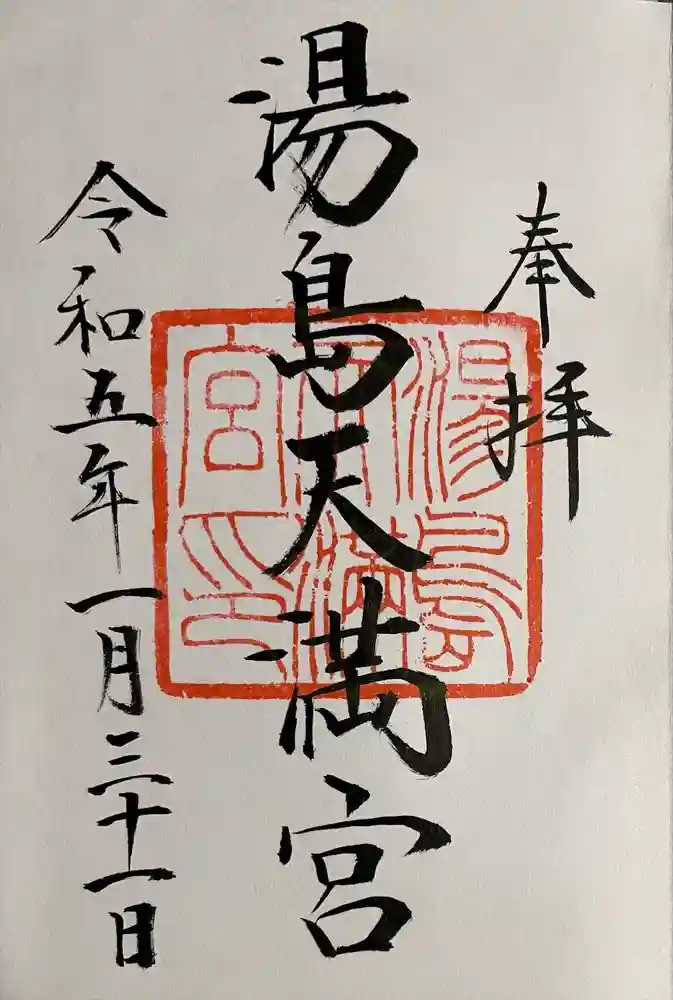 奉拝
湯島天満宮
令和五年一月三十一日
湯島
天満
宮印